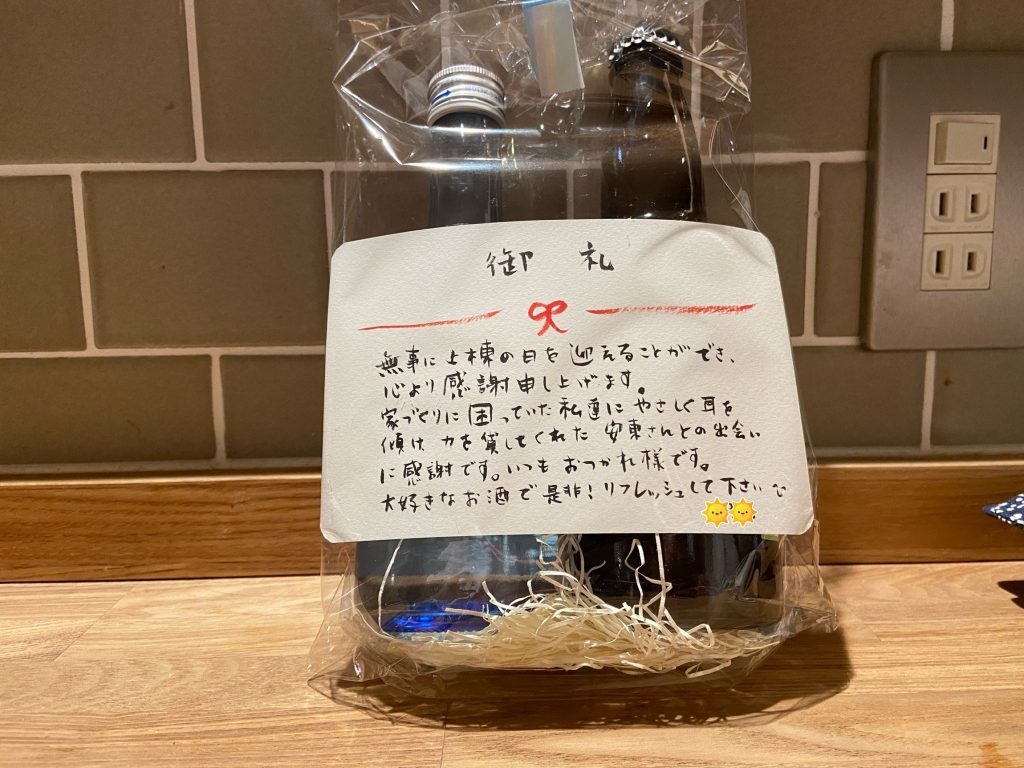 御 礼
無事に上棟の日を迎えることができ、
心より感謝申し上げます。
家づくりに困っていた私達にやさしく耳を
傾け力を貸してくれた 安東さんとの出会い
に感謝です。いつも おつかれ様です。
大好きなお酒で是非!リフレッシュして下さい